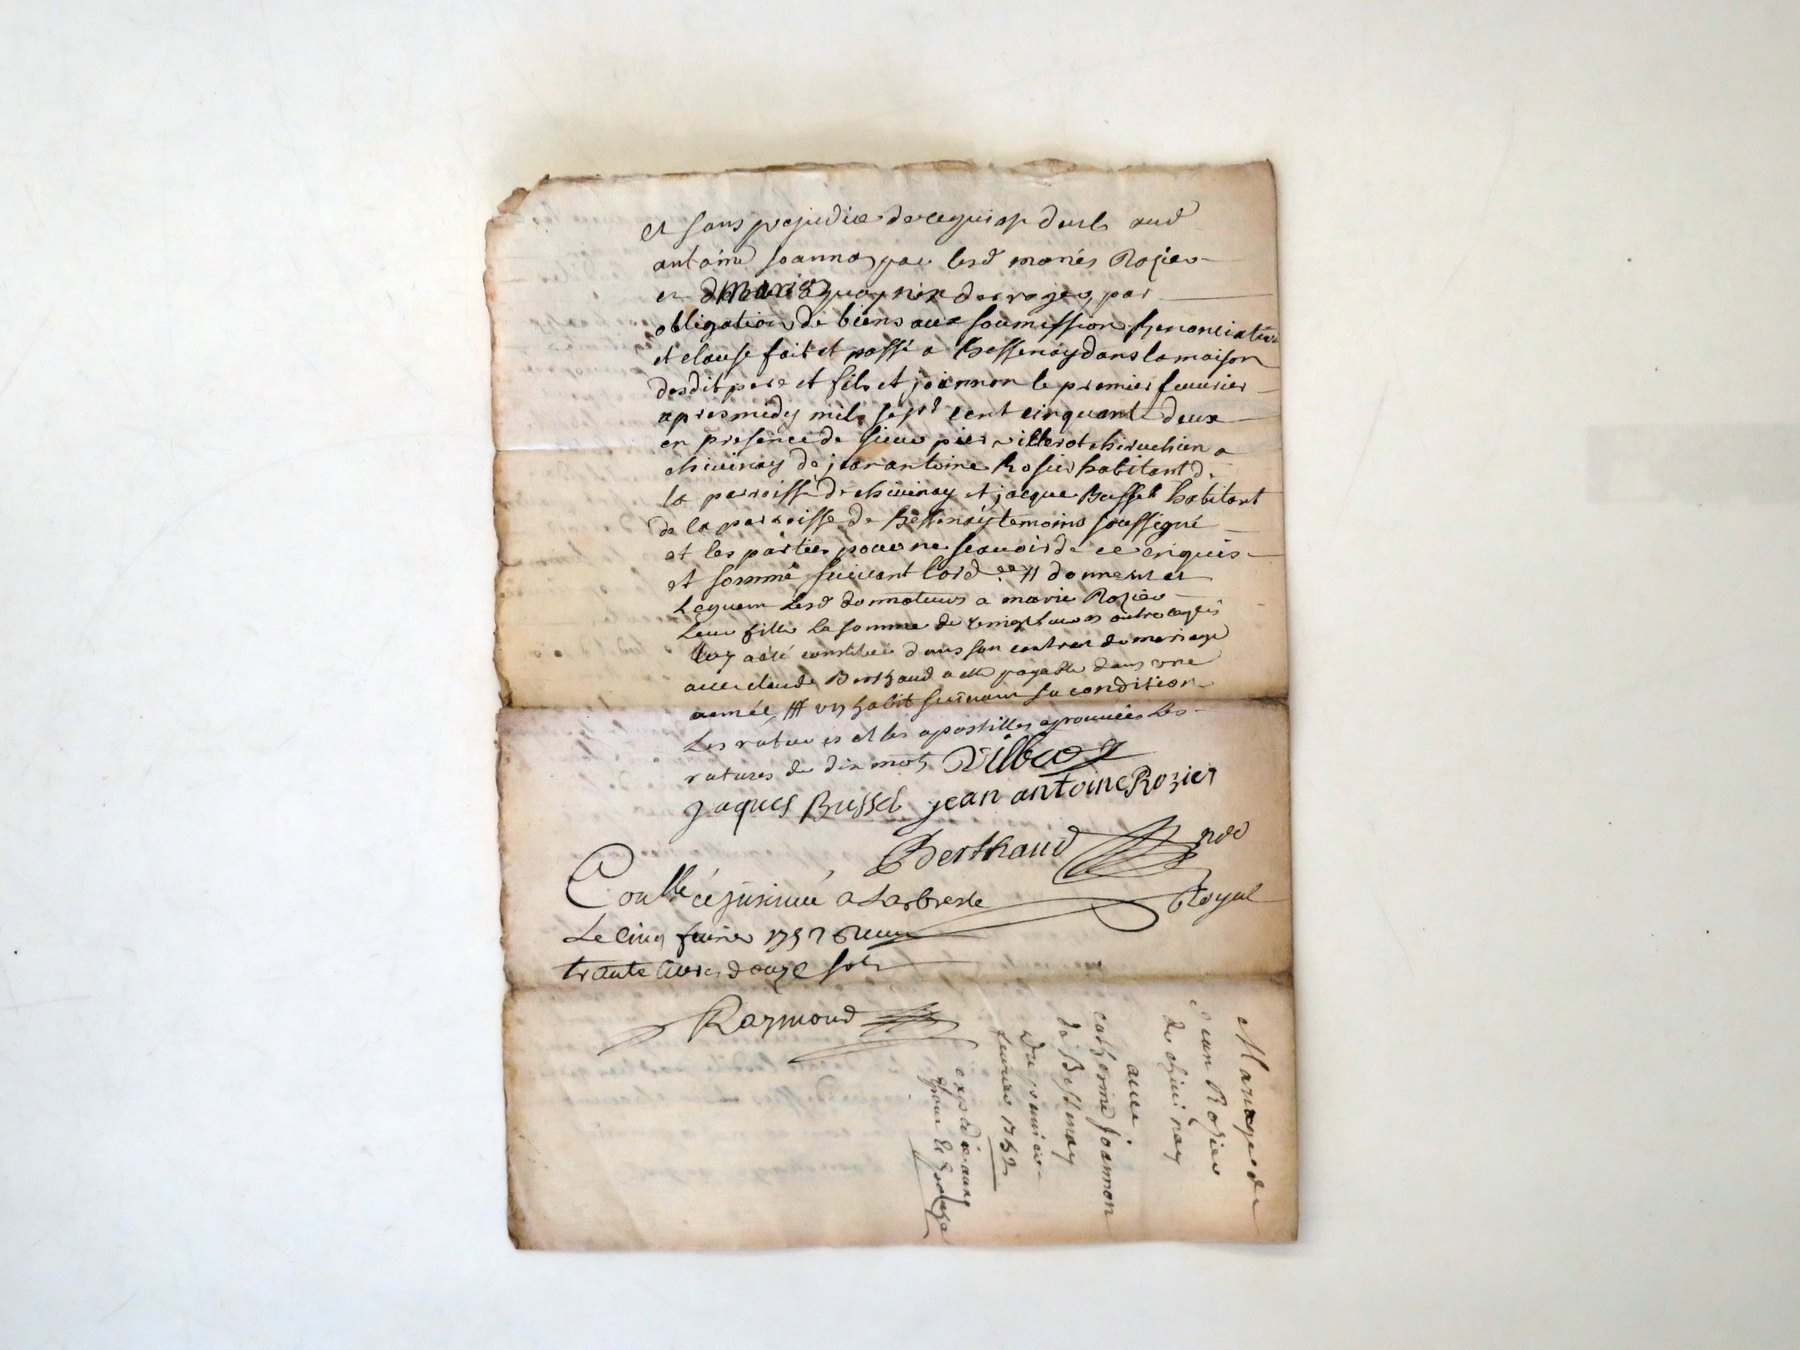 et sans prejudice de ce qui est deub aud
antoine Joannon par lesd mariés Rozier
et marie par
obligation de biens aux soumission Renonciation
et clause fait et passé a Bessenay dans la maison
desdit pere et fils et joannon le premier feuurier
apres midy mil sept cent cinquante deux
en presence de sieur pier villerot chiruchien a
chiuinay de jean antoine Rosier habitant de
la parroisse de chiuinay et jacque Bussel habitant
de la parroisse de Bessenay temoins soussigné
et les parties pour ne scauoir de ce enquis
et sommé suiuant lord donneront
lesd donnateurs a marie Rozier
leur fille la somme de vingt liures outre
luy a été constitué dans son contrat de mariage
auec claude Berthaud a elle payable dans une
année /// un habit suiuant sa condition
Les ratures et les apostilles aprouuées les
ratures de dix mots Villerot
Jaques Bussel jean antoine Rozier
Berthaud nre
Royal
Conllé a Larbresle
Le cinq feurier 1752 Receu
trante liures douze sols
Raymond
Mariage de
jean Rozier
de chiuinay
auec
catherine Joannon
de Bessenay
du premier
feurier 1752
expediée
pour